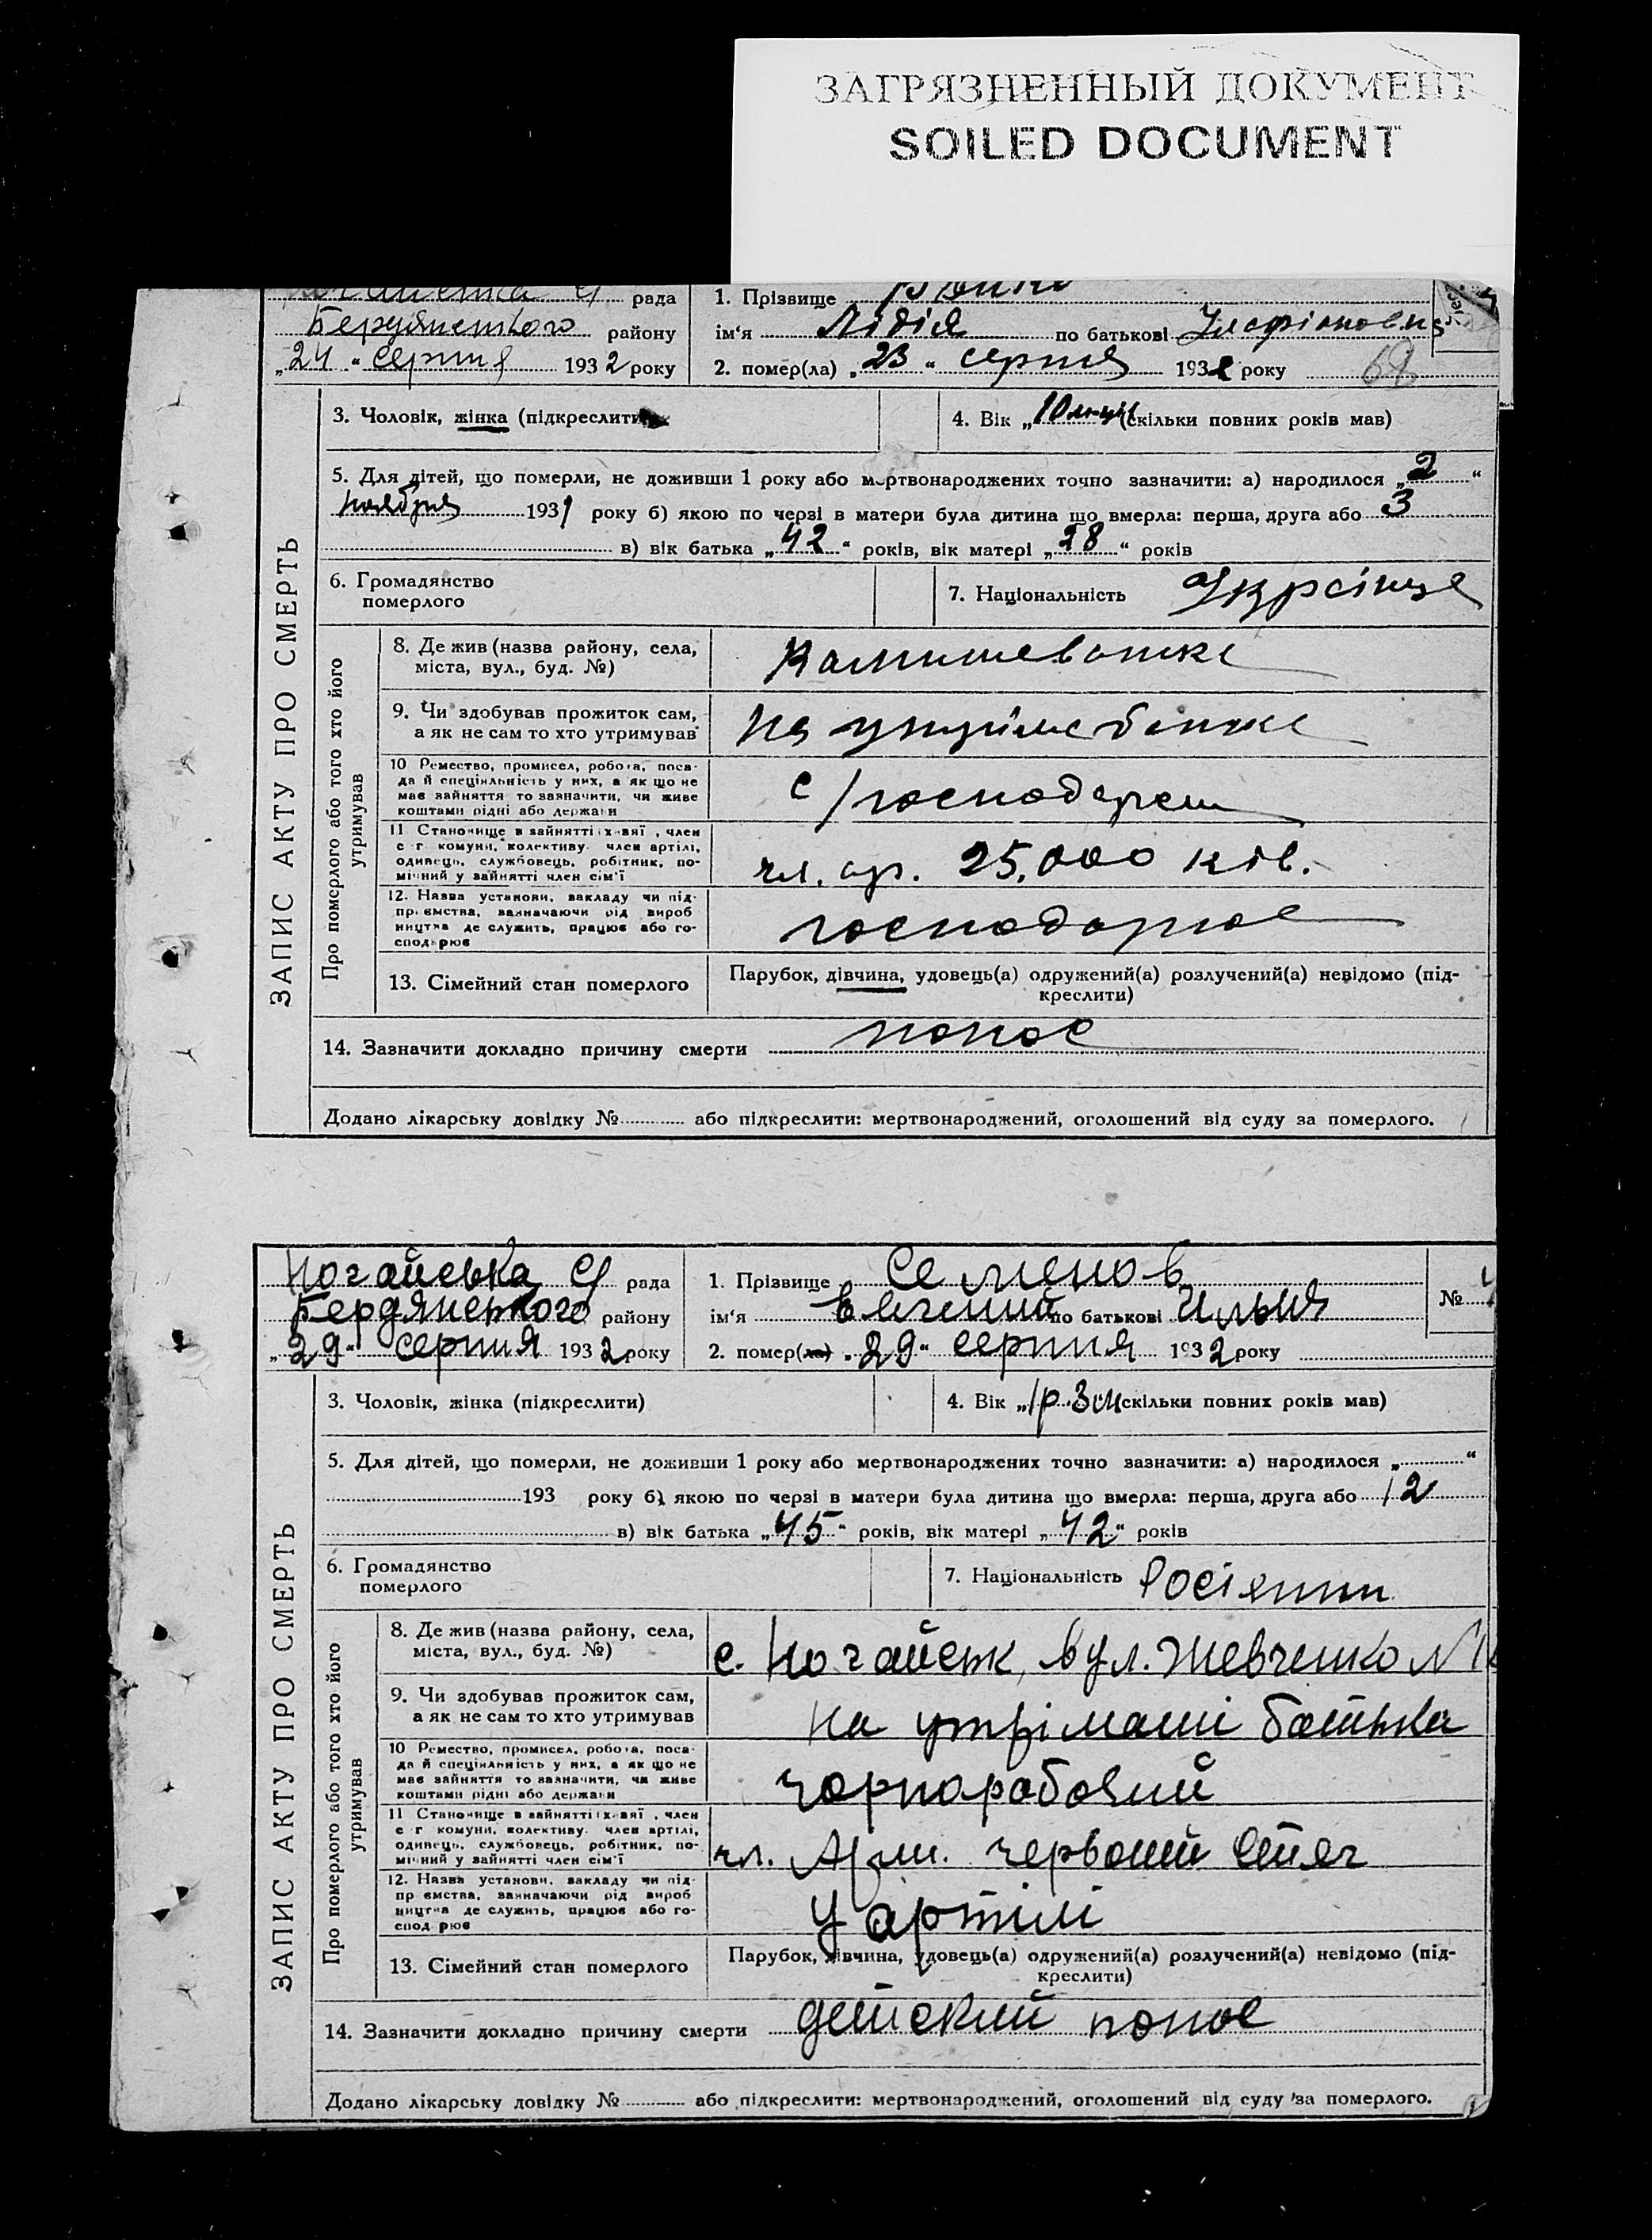 ЗАГРЯЗНЕННЫЙ ДОКУМЕНТ
SOILED DOCUMENT
рада
Бердянського району
„24“ серпня 1932 року
1. Прізвище
ім‘я Лідія по батькові
2. помер(ла) „23“ серпня 1932 року 68
ЗАПИС АКТУ ПРО СМЕРТЬ
3. Чоловік, жінка (підкреслити)
4. Вік „10 (скільки повних років мав)
5. Для дітей, що померли, не доживши 1 року або мертвонароджених точно зазначити: а) народилося „2“
ноября 1931 року б) якою по черзі в матери була дитина що вмерла: перша, друга або 3
в) вік батька „42“ років, вік матері „28“ років
6. Громадянство
померлого
7. Національність
Про померлого або того хто його
утримував
8. Де жив (назва району, села,
міста, вул., буд. №)
9. Чи здобував прожиток сам,
а як не сам то хто утримував
10 Ремество, промисел, робота, поса-
да й спеціяльність у них, а як що не
має зайняття то зазначити, чи живе
коштами рідні або держави
с/господарем
11 Становище в зайнятті (хазяї, член
с-г комуни, колективу член артілі,
одинець, службовець, робітник, по-
мічний у зайнятті член сім‘ї
чл. ар. 25.000 ків.
12. Назва установи, закладу чи під-
приємства, зазначаючи рід вироб
ництва де служить, працює або го-
сподарює
господарює
13. Сімейний стан померлого
Парубок, дівчина, удовець(а) одружений(а) розлучений(а) невідомо (під-
креслити)
14. Зазначити докладно причину смерти понос
Додано лікарську довідку № або підкреслити: мертвонароджений, оголошений від суду за померлого.
Ногайська рада
Бердянского району
„29“ серпня 1932 року
1. Прізвище Семенов
ім‘я Евгений по батькові Ильия
2. помер(ла) „29“ серпня 1932 року
№
ЗАПИС АКТУ ПРО СМЕРТЬ
3. Чоловік, жінка (підкреслити)
4. Вік „1р 3м скільки повних років мав)
5. Для дітей, що померли, не доживши 1 року або мертвонароджених точно зазначити: а) народилося „ “
193 року б) якою по черзі в матери була дитина що вмерла: перша, друга або 12
в) вік батька „45“ років, вік матері „42“ років
6. Громадянство
померлого
7. Національність Росіянин
Про померлого або того хто його
утримував
8. Де жив (назва району, села,
міста, вул., буд. №)
с. Ногайськ, вул. Шевченко N
9. Чи здобував прожиток сам,
а як не сам то хто утримував
на утріманні батька
10 Ремество, промисел, робота, поса-
да й спеціяльність у них, а як що не
має зайняття то зазначити, чи живе
коштами рідні або держави
чорноробочий
11 Становище в зайнятті (хазяї, член
с-г комуни, колективу член артілі,
одинець, службовець, робітник, по-
мічний у зайнятті член сім‘ї
чл. Арт. червоний Стяг
12. Назва установи, закладу чи під-
приємства, зазначаючи рід вироб
ництва де служить, працює або го-
сподарює
У артілі
13. Сімейний стан померлого
Парубок, дівчина, удовець(а) одружений(а) розлучений(а) невідомо (під-
креслити)
14. Зазначити докладно причину смерти детский понос
Додано лікарську довідку № або підкреслити: мертвонароджений, оголошений від суду за померлого.